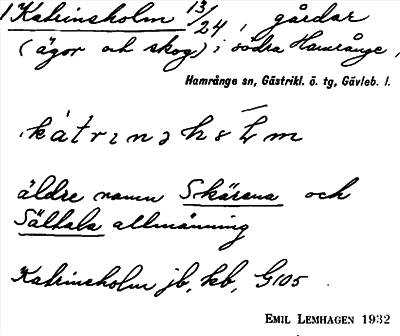 1 Katrinsholm 13/24, gårdar
(ägor och skog) i södra Hamrånge,
Hamrånge sn, Gästrikl. ö. tg, Gävleb. l.
äldre namn Skärena och
Sältala allmänning
Katrinsholm jb, kb, G105
EMIL LEMHAGEN 1932